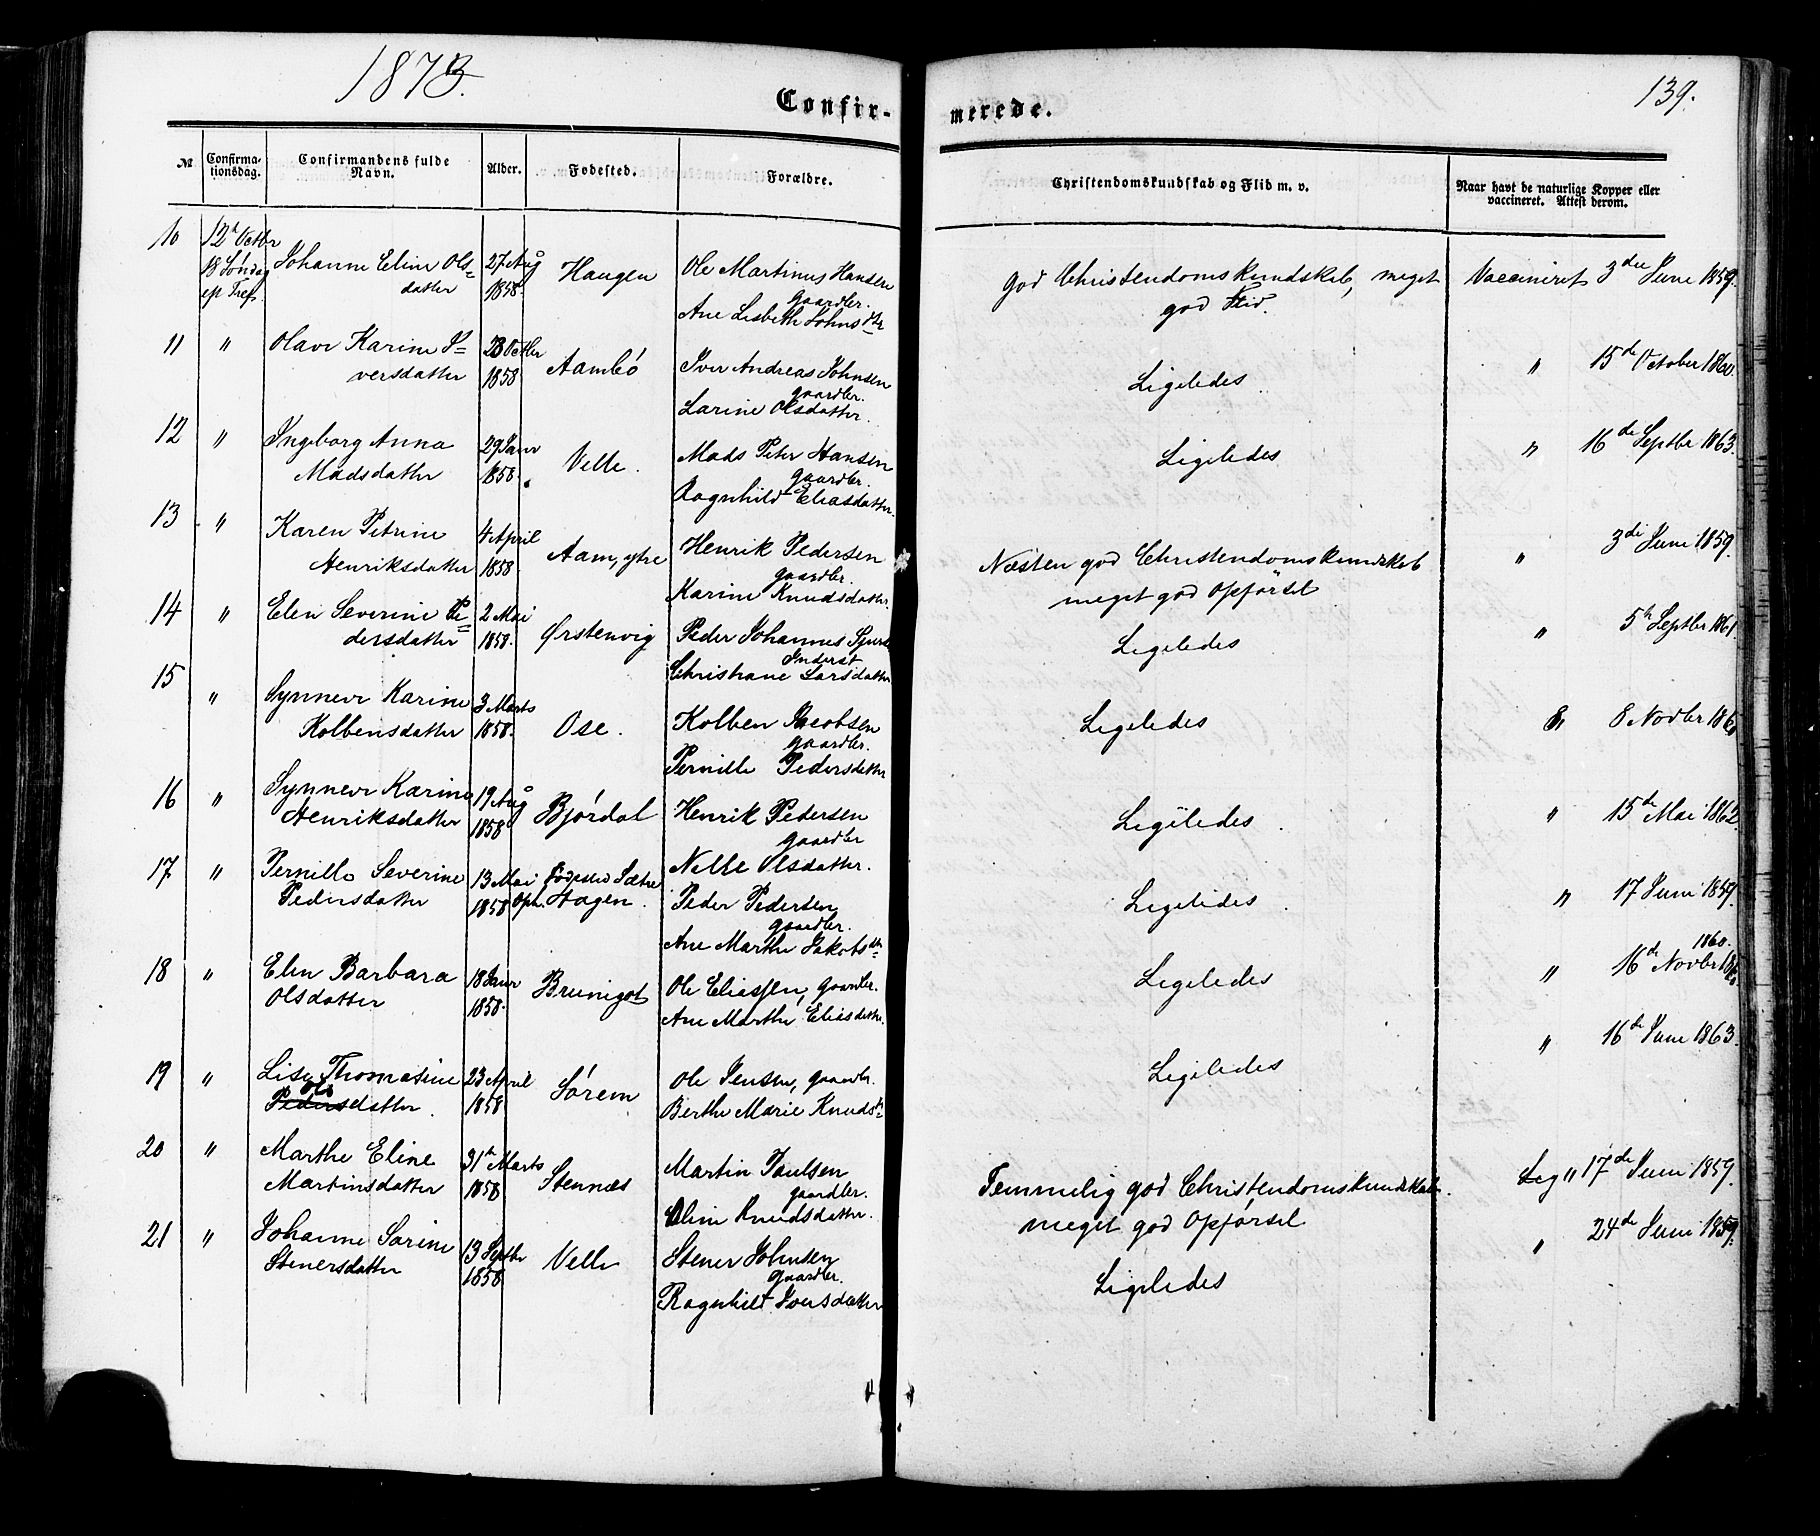 1873.
139.
Confir-
merede.
№
Confirma-
tionsdag.
Confirmandens fulde
Navn.
Alder.
Fødested.
Forældre.
Christendomskundskab og Flid m. v.
Naar havt de naturlige Kopper eller
vaccineret. Attest derom.
10 12te Octbr
18 Søndag
ep Tref.
Johanne Eline Ols=
datter
27 Aug
1858.
Haugen
Ole Martinus Hansen
gaardbr.
Ane Lisbeth Johnsdtr
god Christendomskundskab, meget
god Flid.
Vaccineret 3die Juni 1859.
11 "
Olave Karine I=
versdatter
23 Octbr
1858
Aambø
Iver Andreas Johnsen
gaardbr.
Larine Olsdatter.
Ligeledes
" 15de October 1860.
12 "
Ingeborg Anna
Madsdatter
29 Janr
1858.
Velle.
Mads Peter Hansen
gaardbr.
Ragnhild Eliasdatter.
Ligeledes
" 16de Septbr 1863.
13 "
Karen Petrine
Henriksdatter
4 April
1858
Aam, ytre
Henrik Pedersen
gaardbr.
Karine Knudsdatter.
Næsten god Christendomskundskab
meget god Opførsel
" 3die Juni 1859.
14 "
Elen Severine Pe=
dersdatter
2 Mai
1858.
Ørstenvig
Peder Johannes
Inderst
Christiane Larsdatter
Ligeledes
" 5te Septbr 1861.
15 "
Synneve Karine
Kolbensdatter
3 Marts
1858.
Ose.
Kolben Jacobsen
gaardbr.
Pernille Pedersdatter
Ligeledes
8 Novbr
16 "
Synneve Karine
Henriksdatter
19 Aug
1858
Bjørdal
Henrik Pedersen
gaardbr
Nille Olsdatter.
Ligeledes
" 15de Mai 1862.
17 "
Pernille Severine
Pedersdatter
13 Mai
1858
Fødested Sætre
Oph. Hagen.
Peder Pedersen
gaardbr.
Ane Marthe Jakobsdtr
Ligeledes
" 17 Juni 1859.
18 "
Elen Barbara
Olsdatter
18 Janr
1858.
Brunigot
Ole Eliassen, gaardbr.
Ane Marthe Eliasdatter.
Ligeledes
1860.
" 16de Novbr
19 "
Lise Thomasine
Ols
Pedersdatter.
23 April
1858
Sørem
Ole Jensen, gaardbr.
Berthe Marie Knudsdtr
Ligeledes
" 16de Juni 1863.
20 "
Marthe Eline
Martinsdatter
31te Marts
1858
Stennæs
Martin Paulsen
gaardbr.
Eline Knudsdatter.
Temmelig god Christendomskundskab.
meget god Opførsel
Lig " 17de Juni 1859.
21 "
Johanne Sorine
Stenersdatter
13 Septbr
1858
Velle
Stener Johnsen
gaardbr.
Ragnhild Iversdatter
Ligeledes
" 24de Juni 1859.